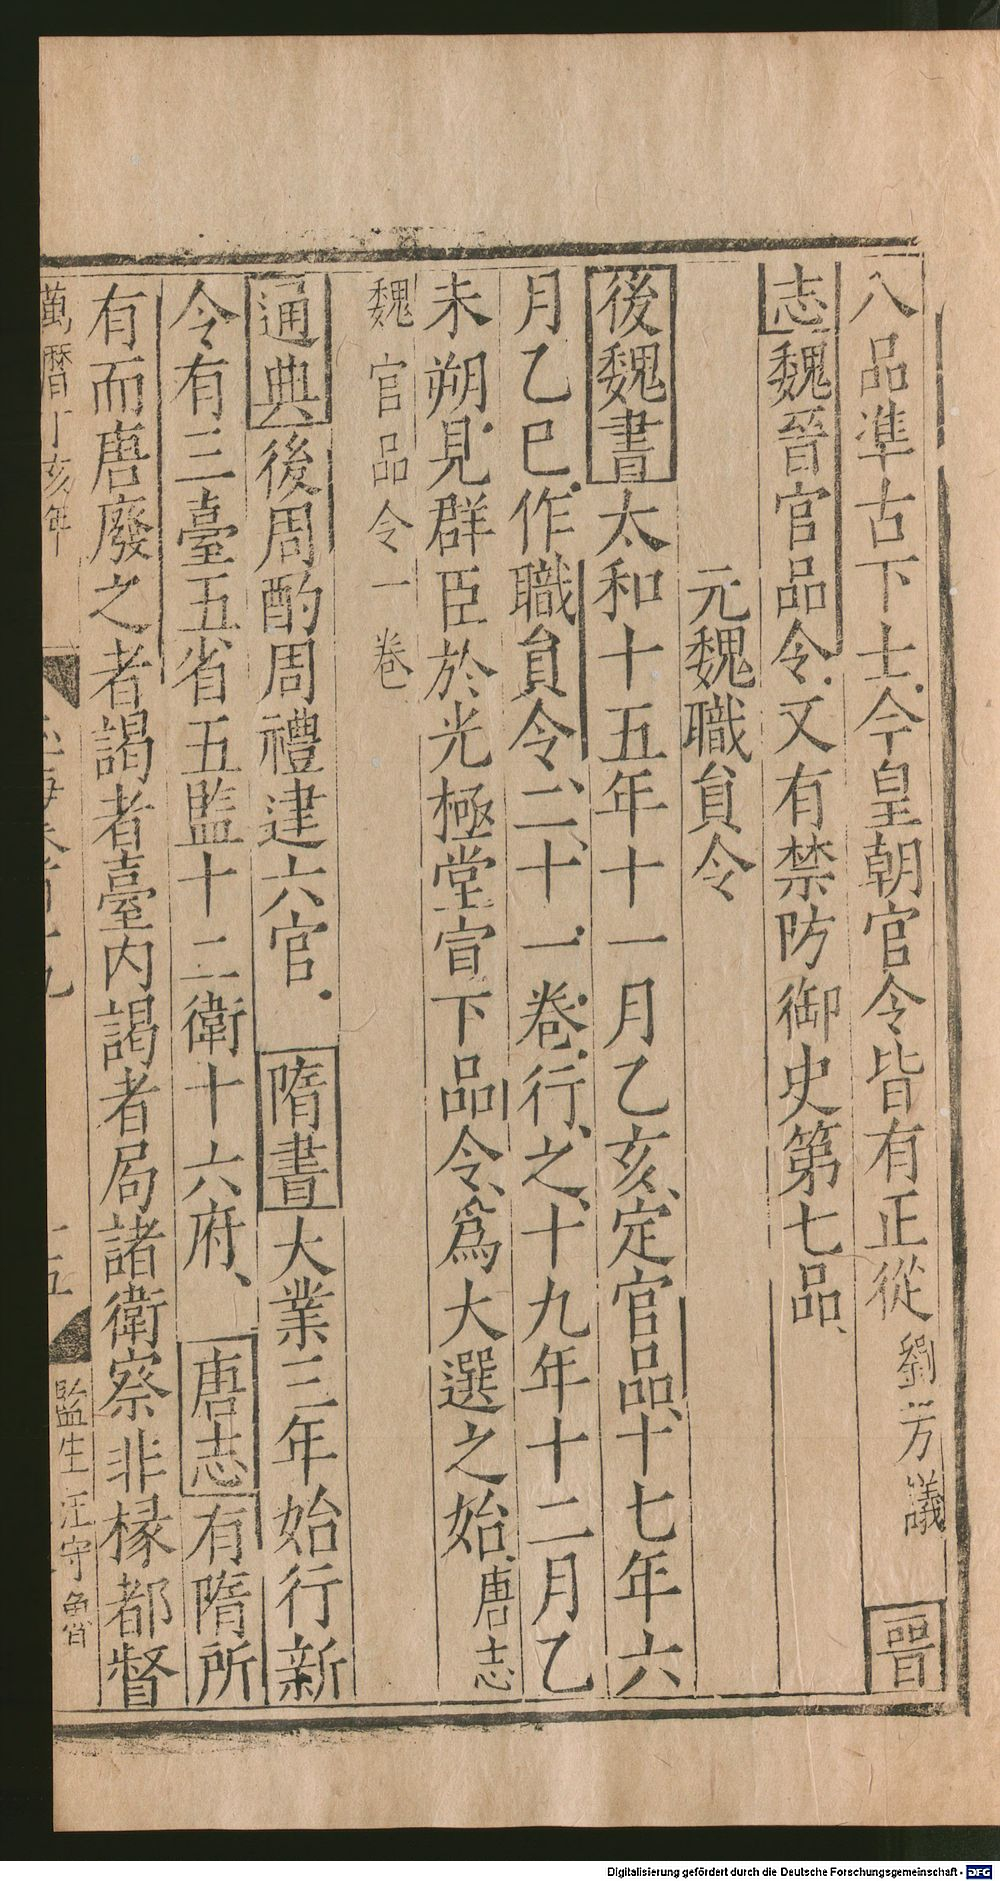 八品準古下士今皇朝官令皆有正從劉芳議晉
志魏晉官品令又有禁防御史第七品
元魏職負令
後魏書太和十五年十一月乙亥定官品十七年六
月乙巳作職負令二十一卷行之十九年十二月乙
未朔見群臣於光極堂宣下品令爲大選之始唐志
魏官品令一卷
通典後周酌周禮建六官隋書大業三年始行新
令有三臺五省五監十二衛十六府唐志有隋所
有而唐廢之者謁者臺內謁者局諸衛察非椽都督
萬曆丁亥年 十五 監生汪守魯
Digitalisierung gefördert durch die Deutsche Forschungsgemeinschaft - DFG